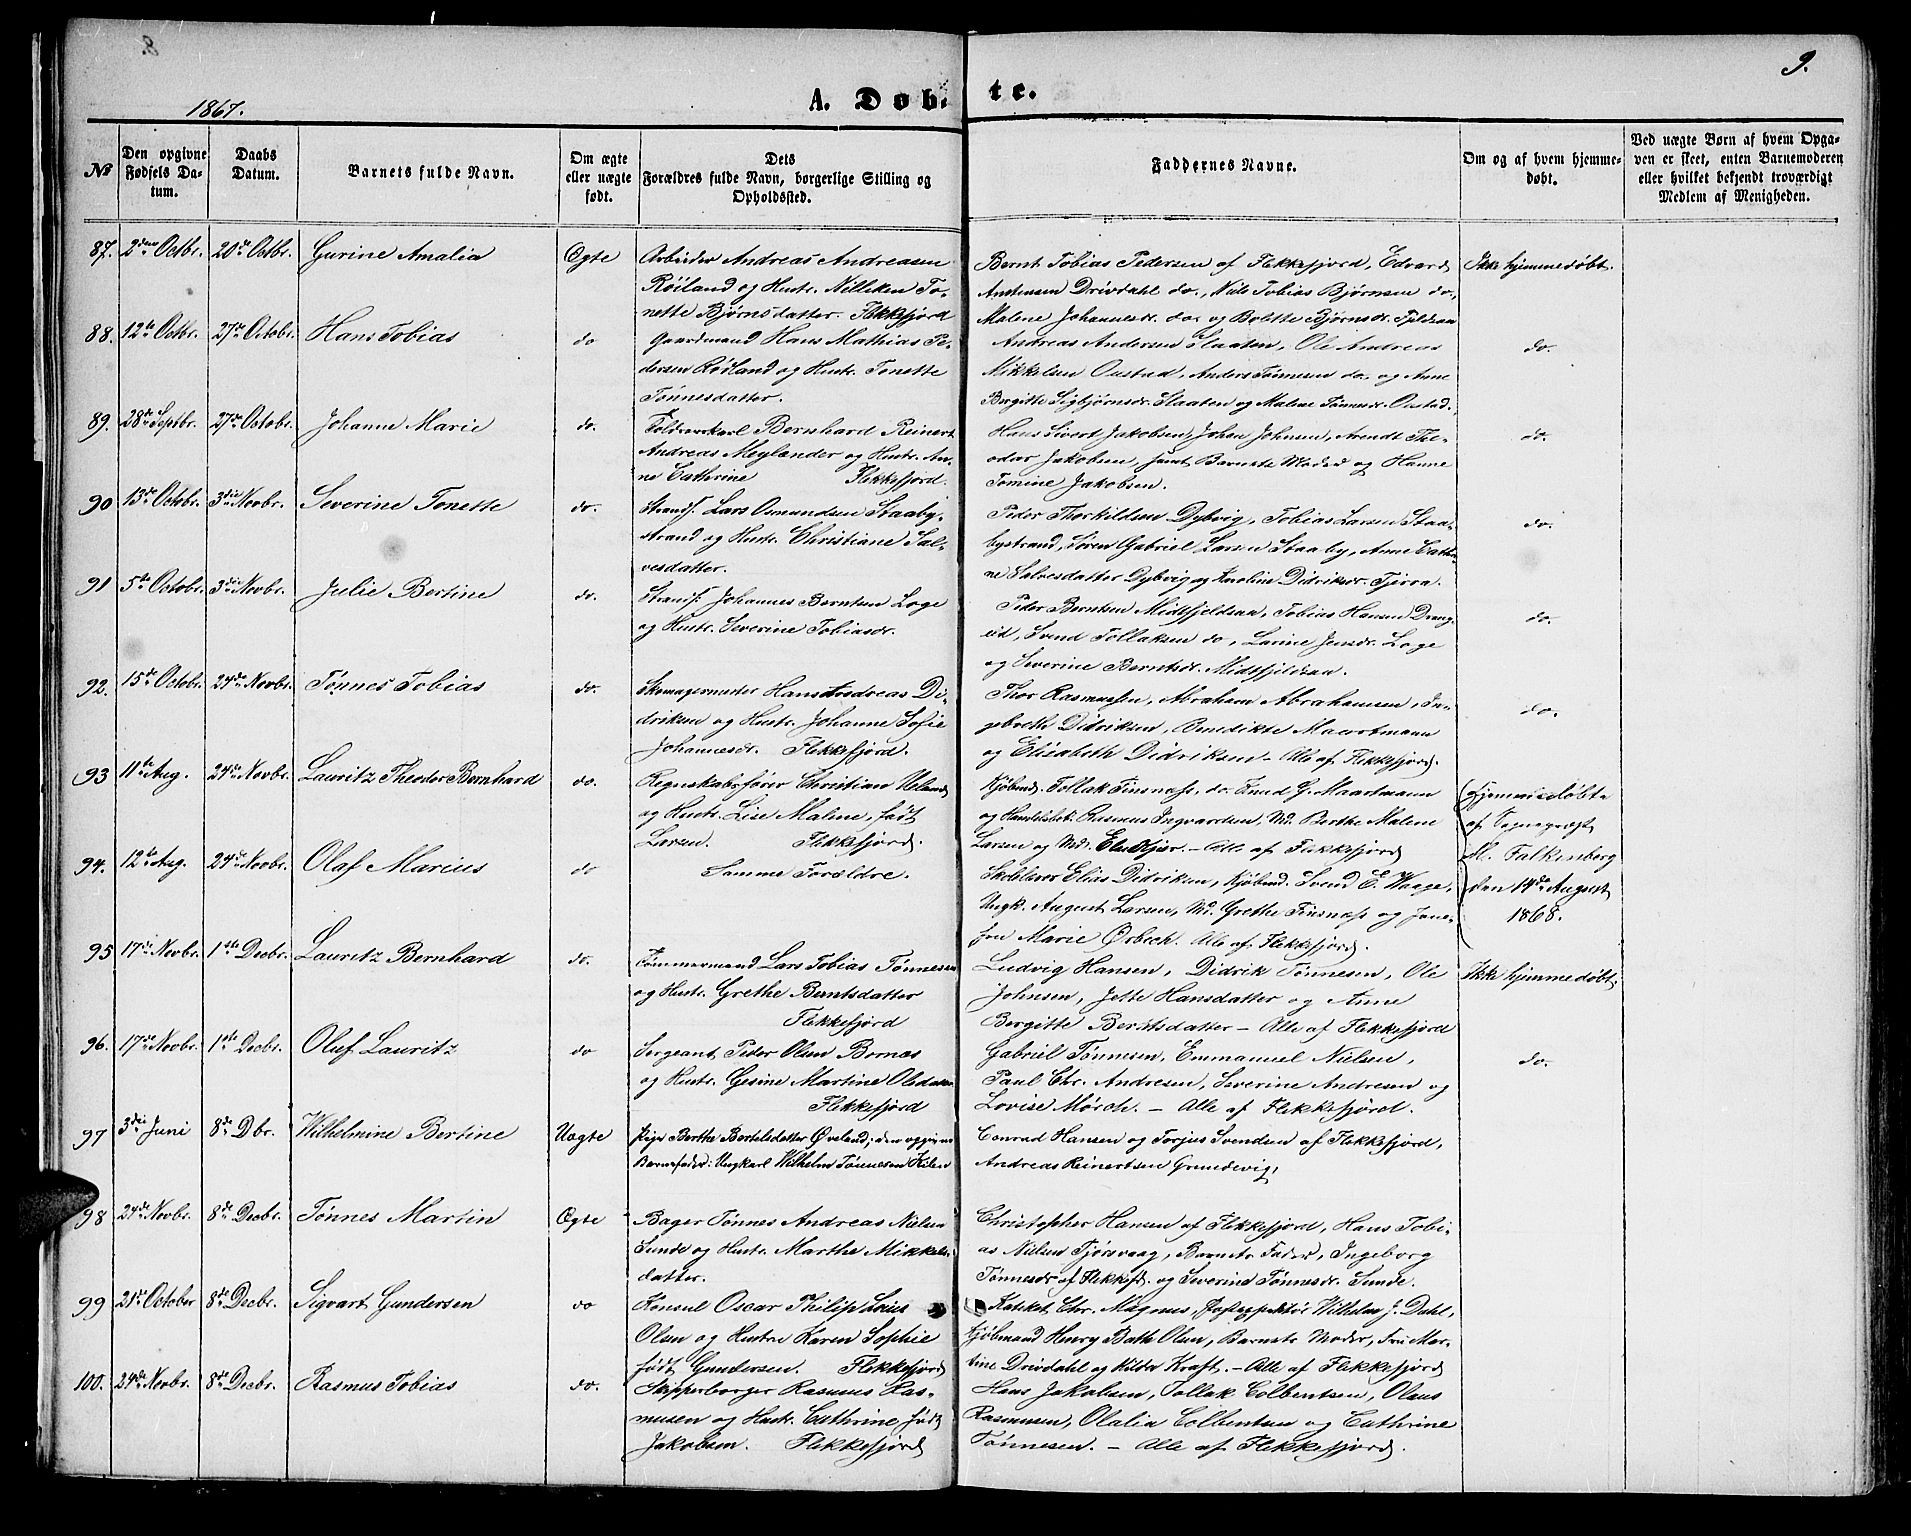 8.
9.
1867.
A. Døb-
te.
No
Den opgivne Fødsels Datum.
Daabs Datum.
Barnets fulde Navn.
Om ægte eller uægte født.
Dets Forældres fulde Navn, borgerlige Stilling og Opholdssted.
Faddernes Navne.
Om og af hvem hjemmedøbt.
Ved uægte Børn af hvem Opgaven er skeet, enten Barnemoderen eller hvilket bekjendt troværdigt Medlem af Menigheden.
87. 2den Octbr. 20de Octbr. Gurine Amalia Ægte Arbeider Andreas Andreasen
Røiland og Hustr. Nilliken To-
nette Bjørnsdatter. Flekkefjord
Bernt Tobias Pedersen af Flekkefjord, Edvard
Andensen Drivdahl do., Nils Tobias Bjørnsen do.,
Malene Johannesdr. do. og Bolette Bjørnsdr. Fjeldsaa
Ikke hjemmedøbt.
88. 12te Octbr. 27de Octobr. Hans Tobias do Gaardmand Hans Mathias Pe-
dersen Rødland og Hustr. Tonette
Tønnesdatter.
Andreas Andersen Slaaten, Ole Andreas
Mikkelsen Oustad, Anders Tønnesen do. og Anne
Birgitte Sigbjørnsdr. Slaaten og Malene Tønnesdr. Oustad.
do.
89. 28de Septbr. 27de Octobr. Johanne Marie do. Toldroerkarl Bernhard Reinert
Andreas Meylander og Hustr. An-
ne Cathrine Flekkefjord.
Hans Sivert Jakobsen, Johan Johnsen, Arendt The-
odor Jakobsen, samt Barnets Moder og Hanne
Tomine Jakobsen.
do.
90 13de Octobr. 3die Novbr. Severine Tonette do. Strands. Lars Osmundsen Staaby-
strand og Hustr. Christiane Sal-
vesdatter.
Peder Thorkildsen Dybvig, Tobias Larsen Staa-
bystrand, Søren Gabriel Larsen Staaby, Anne Cathri-
ne Salvesdatter Dybvig og Karoline Didriksdr. Tjørra.
do.
91 5te Octobr. 3die Novbr. Julie Bertine do. Strands. Johannes Berntsen Loge
og Hustr. Severine Tobiasdr.
Peder Berntsen Midtfjeldsaa, Tobias Hansen Drang-
eid, Svend Tollaksen do, Larine Jensdr. Loge
og Severine Berntsdr. Midtfjeldsaa.
do.
92. 15de Octobr. 24de Novbr. Tønnes Tobias do. Skomagermester Hans Andreas Di-
driksen og Hustr. Johanne Sofie
Johannesdr. Flekkefjord.
Thor Rasmussen, Abraham Abrahamsen, In-
geborth Didriksen, Benedikte Maartmann
og Elisabeth Didriksen – Alle af Flekkefjord.
do.
93 11te Aug. 24de Novbr. Lauritz Theodor Bernhard do. Regnskabsfører Christian Ueland
og Hustr. Lise Malene, født
Larsen. Flekkefjord.
Kjøbmd. Tollak Finsnæss, do. Knud G. Maartmann
og Handelsbet. Rasmus Ingvardsen, Md. Berthe Malene
Larsen og Md. – Alle af Flekkefjord
Hjemmedøbte
af
M. Falkenberg
den 14de August
1868.
94. 12te Aug. 24de Novbr. Olaf Marius do Samme Forældre.
Skolelærer Elias Didriksen, Kjøbmd. Svend E. Waage,
Ungk. August Larsen, Md. Grethe Finsnæss og Jom-
fru Marie Ørbech. Alle af Flekkefjord.
95 17de Novbr. 1ste Decbr. Lauritz Bernhard do. Tømmermand Lars Tobias Tønnesen
og Hustr. Grethe Berntsdatter
Flekkefjord
Ludvig Hansen, Didrik Tønnesen, Ole
Johnsen, Jette Hansdatter og Anne
Bergitte Berntsdatter – Alle af Flekkefjord
Ikke hjemmedøbt.
96. 17de Novbr. 1ste Decbr. Oluf Lauritz do Sergeant Peder Olsen Bornæs
og Hustr. Gesine Martine Olsdatter
Flekkefjord
Gabriel Tønnesen, Emmanuel Nielsen,
Paul Chr. Andresen, Severine Andresen og
Lovise Mørch. – Alle af Flekkefjord.
do.
97 3die Juni 8de Dbr. Wilhelmine Bertine Uægte Pige Berthe Bertelsdatter Øveland; den opgivne
Barnefader: Ungkarl Wilhelm Tønnesen Kilen
Conrad Hansen og Torjus Svendsen af Flekkefjord,
Andreas Reinertsen Grundevig,
98 24de Novbr. 8de Decbr. Tønnes Martin Ægte Bager Tønnes Andreas Nielsen
Sunde og Hustr. Marthe Mikkels-
datter.
Christopher Hansen af Flekkefjord, Hans Tobi-
as Nielsen Tjørsvaag, Barnets Fader, Ingeborg
Tønnesdr af Flekkefd. og Severine Tønnesdr. Sunde.
99 21de October 8de Decbr. Sigvart Gundersen do Konsul Oscar Philip Louis
Olsen og Hustru Karen Sophie
født Gundersen. Flekkefjord
Katiket Chr. Magnus, Wilhelm J. Dahl,
Kjøbmand Henry Bath Olsen, Barnets Moder, Frk. Mar-
tine Drivdahl og Hilda Kraft. – Alle af Flekkefjord
100. 24de Novbr. 8de Decbr. Rasmus Tobias do. Skipperborger Rasmus Ras-
musen og Hustr. Cathrine født
Jakobsen. Flekkefjord
Hans Jakobsen, Tollak Colbentsen, Olaus
Rasmusen, Olalia Colbentsen og Cathrine
Tønnesen. – Alle af Flekkefjord.